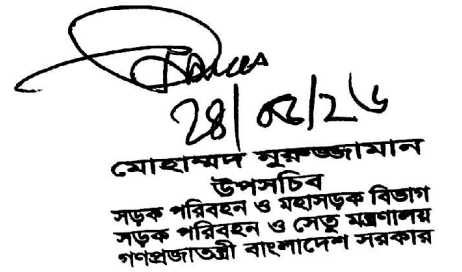 মোহাম্মদ নুরুজ্জামান
উপসচিব
সড়ক পরিবহন ও মহাসড়ক বিভাগ
সড়ক পরিবহন ও সেতু মন্ত্রণালয়
গণপ্রজাতন্ত্রী বাংলাদেশ সরকার